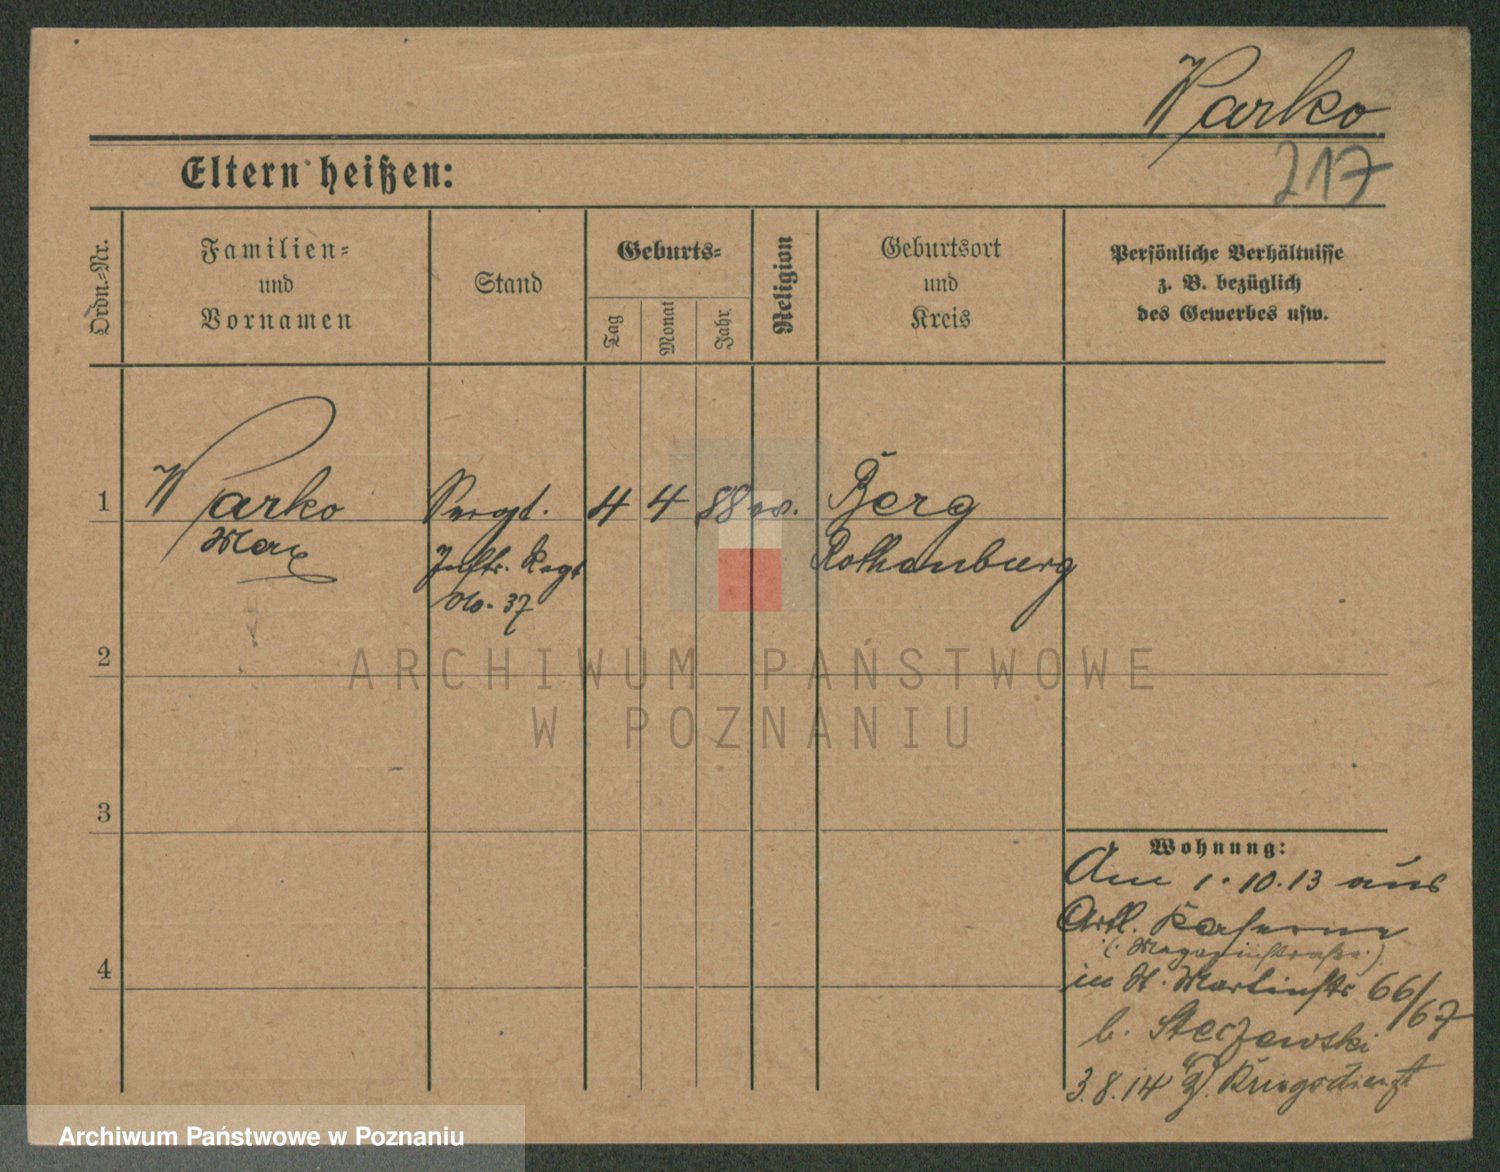 Warko
217
Eltern heißen:
Ordn.-Nr.
Familien-
und
Vornamen
Stand
Geburts-
Tag
Monat
Jahr
Religion
Geburtsort
und
Kreis
Persönliche Verhältnisse
z. B. bezüglich
des Gewerbes usw.
1 Warko Sergt. 4 4 88 ev. Berg
Max Inftr. Regt Rothenburg
No. 37
2
3
4
Wohnung:
Am 1.10.13 aus
Artl. Kaserne
(Magazinstraße)
in St. Martinstr 66/67
b. Steczewski
3.8.14 z. Kriegsdienst
ARCHIWUM PAŃSTWOWE
W POZNANIU
Archiwum Państwowe w Poznaniu